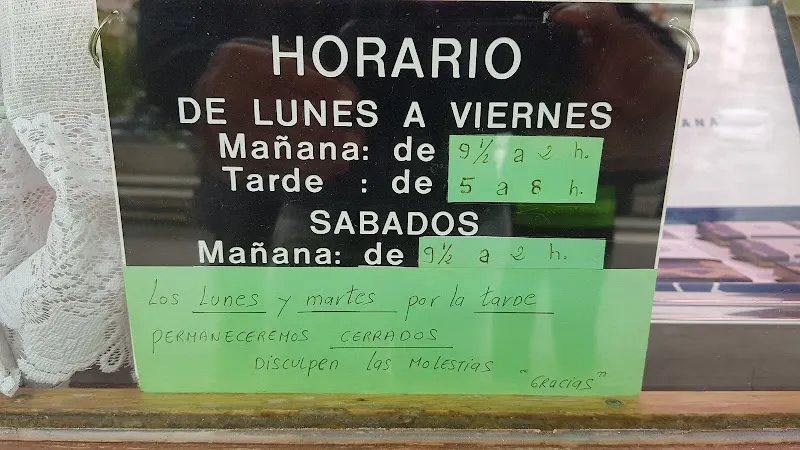 HORARIO
DE LUNES A VIERNES
Mañana: de 9½ a 2 h.
Tarde : de 5 a 8 h.
SABADOS
Mañana: de 9½ a 2 h.
Los Lunes y martes por la tarde
PERMANECEREMOS CERRADOS
DISCULPEN las MOLESTIAS
"Gracias"